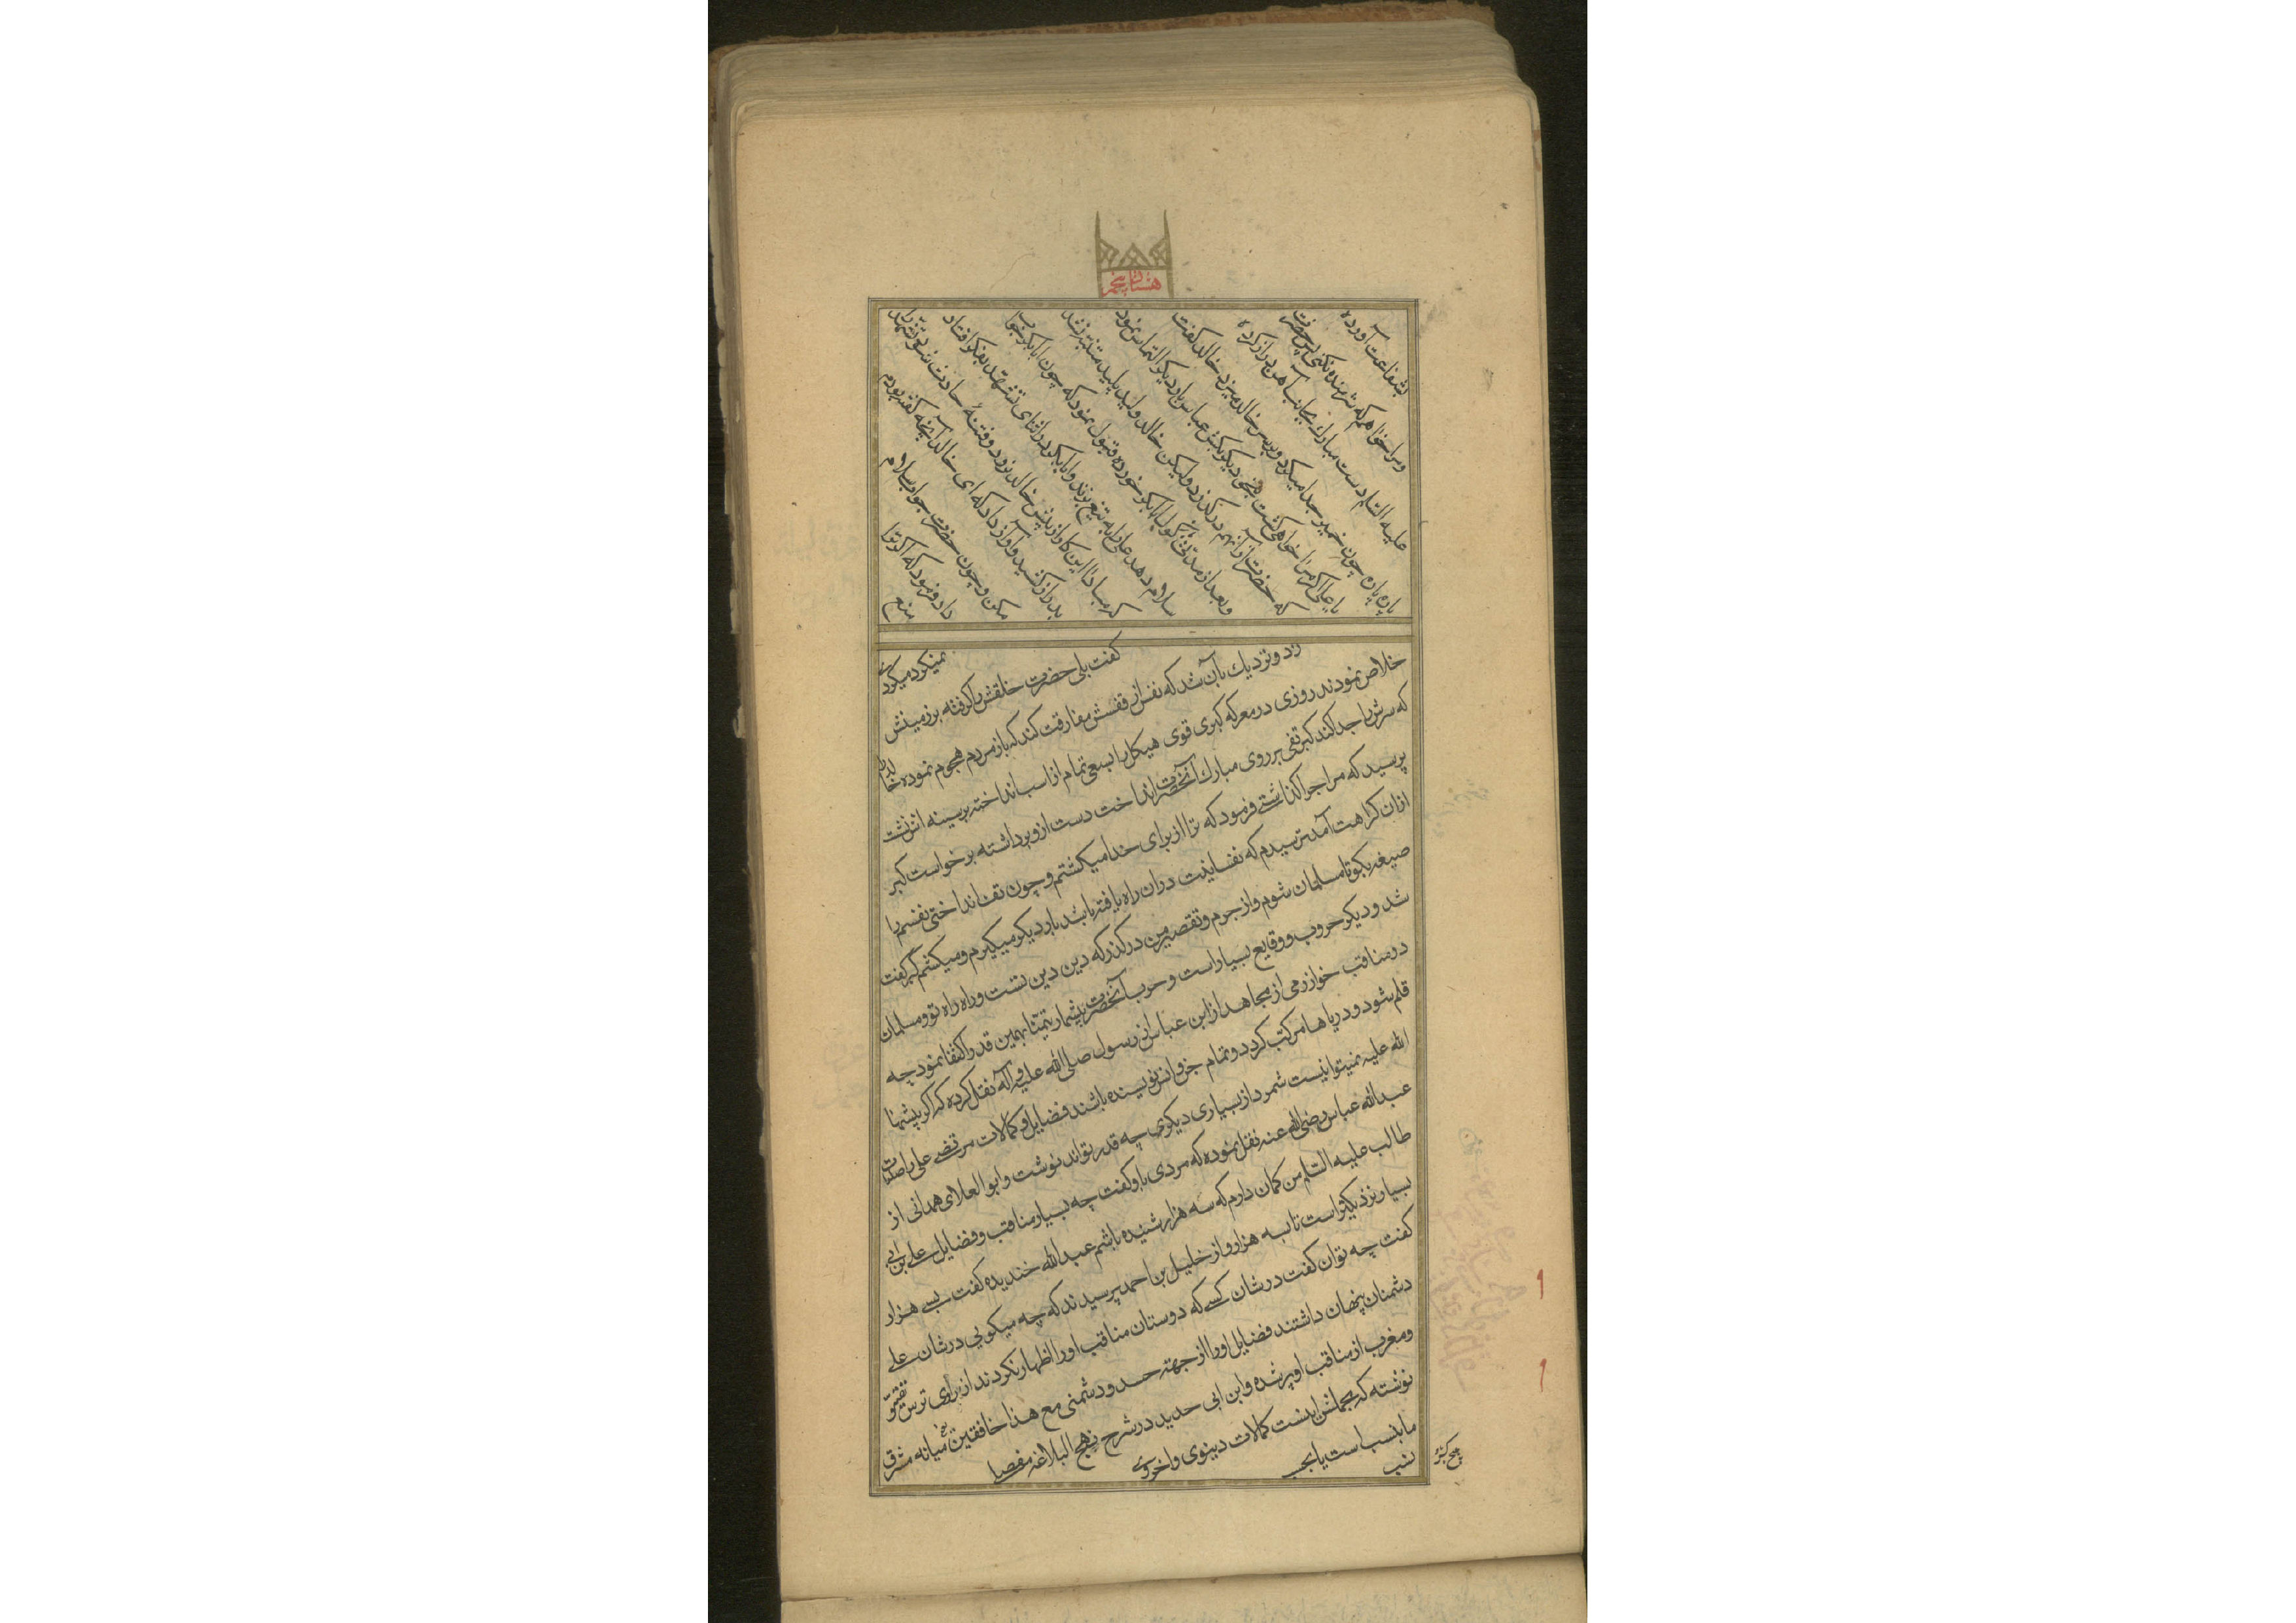 هشتاد پنجم
بشفاعت آورده
و مرا خواهم که شرمنده نکنی پس حضرت
علیه السلام دست مبارك بجانب آهن دراز کرده
پاره پاره چون خمیر جدا میکرد و بر سر خالد میزد خالد گفت
یا علی اگر مرا خواهی کشت هیچ دیگر بکش عباس بار دیگر التماس نمود
که حضرت از آنهم درگذرد و لیکن خالد ولید پلید متنبه نشد
و بعد از مدتی باز گول ابابکر خورده قبول نمود که چون ابابکر جواب
سلام دهد علی را به تیغ بزند و ابابکر در اثنای تشهد بفکر افتاد
که مبادا این کار از پیش خالد نرود و فتنهٔ حادث شود تشهد را
بدراز کشید و آواز داد که ای خالد آنچه گفته بودم
مکن و چون حضرت جواب سلام
داد فرمود که اگر ترا
منع
نمیکرد میکردی
گفت بلی حضرت خلقش را گرفته بر زمینش
زد و نزدیك بآن شد که نفس از قفسش مفارقت کند که باز مردم هجوم نموده خالد را
خلاص نمودند روزی در معرکه کبری قوی هیکل را بسعی تمام از اسب انداخته بر سینه اش نشت
که سرش را جدا کند کبر تفی بر روی مبارك آنحضرت انداخت دست از و برداشته برخواست کبر
پرسید که مرا چرا گذاشتی فرمود که ترا از برای خدا میکشتم و چون تف انداختی نفسم را
ازان کراهت آمد ترسیدم که نفسانیت دران راه یافته باشد بار دیگر میگیرم و میکشم گبر گفت
صیغه بگو تا مسلمان شوم و از جرم و تقصیر من در گذر که دین دین تست و راه راه تو و مسلمان
شد و دیگر حروب و وقایع بسیار است و حرب آنحضرت بیشمار تیمنا بهمین قدر اکتفا نمود چه
در مناقب خوارزمی از مجاهد از ابن عباس از رسول صلی الله علیه و آله نقل کرده که اگر پیشهها
قلم شود و دریاها مرکب گردد و تمام جن و انس نویسنده باشند فضایل و کمالات مرتضی علی را صلوات
الله علیه نمیتوانیست شمرد از بسیاری دیگری چه قدر تواند نوشت و ابو العلای همدانی از
عبدالله عباس رضی الله عنه نقل نموده که مردی باو گفت چه بسیار مناقب و فضایل علی بن ابی
طالب علیه السلام من گمان دارم که سه هزار شنیده باشم عبدالله خندیده گفت بسی هزار
بسیار نزدیکتر است تا سه هزار و از خلیل بن احمد پرسیدند که چه میگویی در شان علی
گفت چه توان گفت در شان کسی که دوستان مناقب او را اظهار نکردند از برای ترس و تقیه و
دشمنان پنهان داشتند فضایل او را از جهته حسد و دشمنی مع هذا خافقین یعنی میانه مشرق
و مغرب از مناقب او پر شده و ابن ابی حدید در شرح نهج البلاغه مفصلا
نوشته که مجملش اینست کمالات دینوی و اخروی
ما بنسب است یا بحسب
نسب